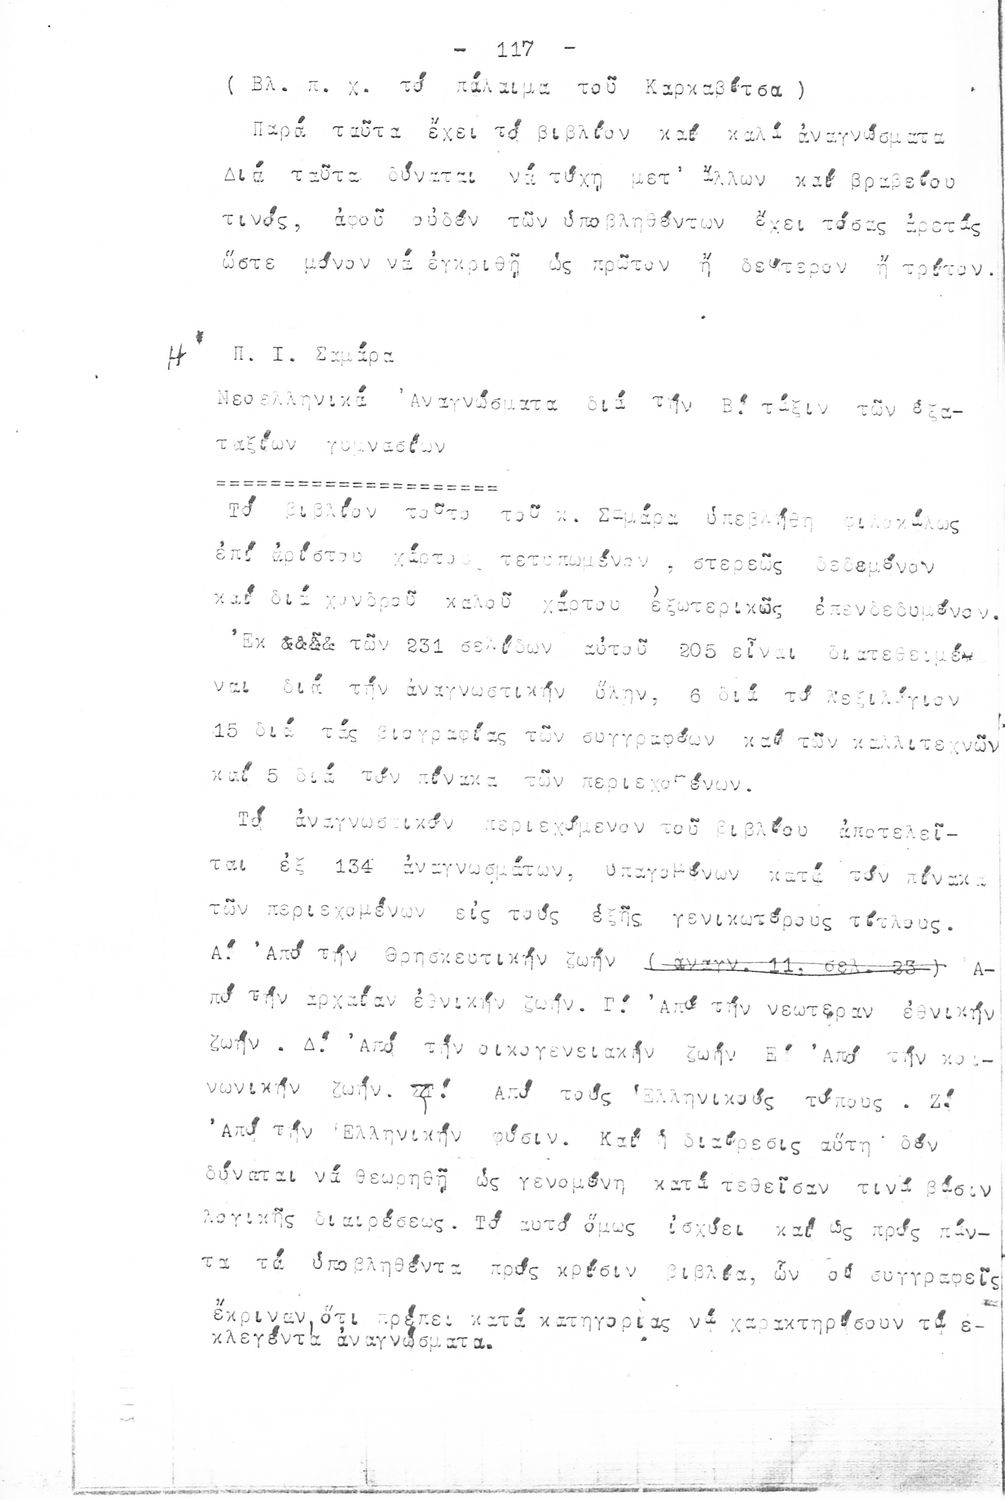 - 117 -
( Βλ. π. χ. τό πάλαιμα τοῦ Καρκαβίτσα )
Παρά ταῦτα ἔχει τό βιβλίον καί καλά ἀναγνώσματα
Διά ταῦτα δύναται νά τύχῃ μετ' ἄλλων καί βραβείου
τινός, ἀφοῦ οὐδέν τῶν ὑποβληθέντων ἔχει τόσας ἀρετάς
ὥστε μόνον νά ἐγκριθῇ ὡς πρῶτον ἤ δεύτερον ἤ τρίτον.
Π. Ι. Σαμάρα
Νεοελληνικά Ἀναγνώσματα διά τήν Β! τάξιν τῶν ἑξα-
ταξίων γυμνασίων
======================
Τό βιβλίον τοῦτο τοῦ κ. Σαμάρα ὑπεβλήθη φιλοκάλως
ἐπί ἀρίστου χάρτου τετυπωμένον , στερεῶς δεδεμένον
καί διά χονδροῦ καλοῦ χάρτου ἐξωτερικῶς ἐπενδεδυμένον.
Ἐκ τῶν 231 σελίδων αὐτοῦ 205 εἶναι διατεθειμέ-
ναι διά τήν ἀναγνωστικήν ὕλην, 6 διά τό λεξιλόγιον
15 διά τάς βιογραφίας τῶν συγγραφέων καί τῶν καλλιτεχνῶν
καί 5 διά τόν πίνακα τῶν περιεχομένων.
Τό ἀναγνωστικόν περιεχόμενον τοῦ βιβλίου ἀποτελεῖ-
ται ἐξ 134 ἀναγνωσμάτων, ὑπαγομένων κατά τόν πίνακα
τῶν περιεχομένων εἰς τούς ἑξῆς γενικωτέρους τίτλους.
Α! Ἀπό τήν θρησκευτικήν ζωήν ( αναγν. 11, σελ. 23 ) Α-
πό τήν αρχαίαν ἐθνικήν ζωήν. Γ! Ἀπό τήν νεωτέραν ἐθνικήν
ζωήν . Δ! Ἀπό τήν οικογενειακήν ζωήν Ε! Ἀπό τήν κοι-
νωνικήν ζωήν. ΣΤ! Από τούς Ἑλληνικούς τόπους . Ζ!
Ἀπό τήν Ἑλληνικήν φύσιν. Καί ἡ διαίρεσις αὕτη δέν
δύναται νά θεωρηθῇ ὡς γενομένη κατά τεθεῖσαν τινά βάσιν
λογικῆς διαιρέσεως. Τό αυτό ὅμως ἰσχύει καί ὡς πρός πάν-
τα τά ὑποβληθέντα πρός κρίσιν βιβλία, ὧν οἱ συγγραφεῖς
ἔκριναν, ὅτι πρέπει κατά κατηγορίας νά χαρακτηρίσουν τά ἐ-
κλεγέντα ἀναγνώσματα.